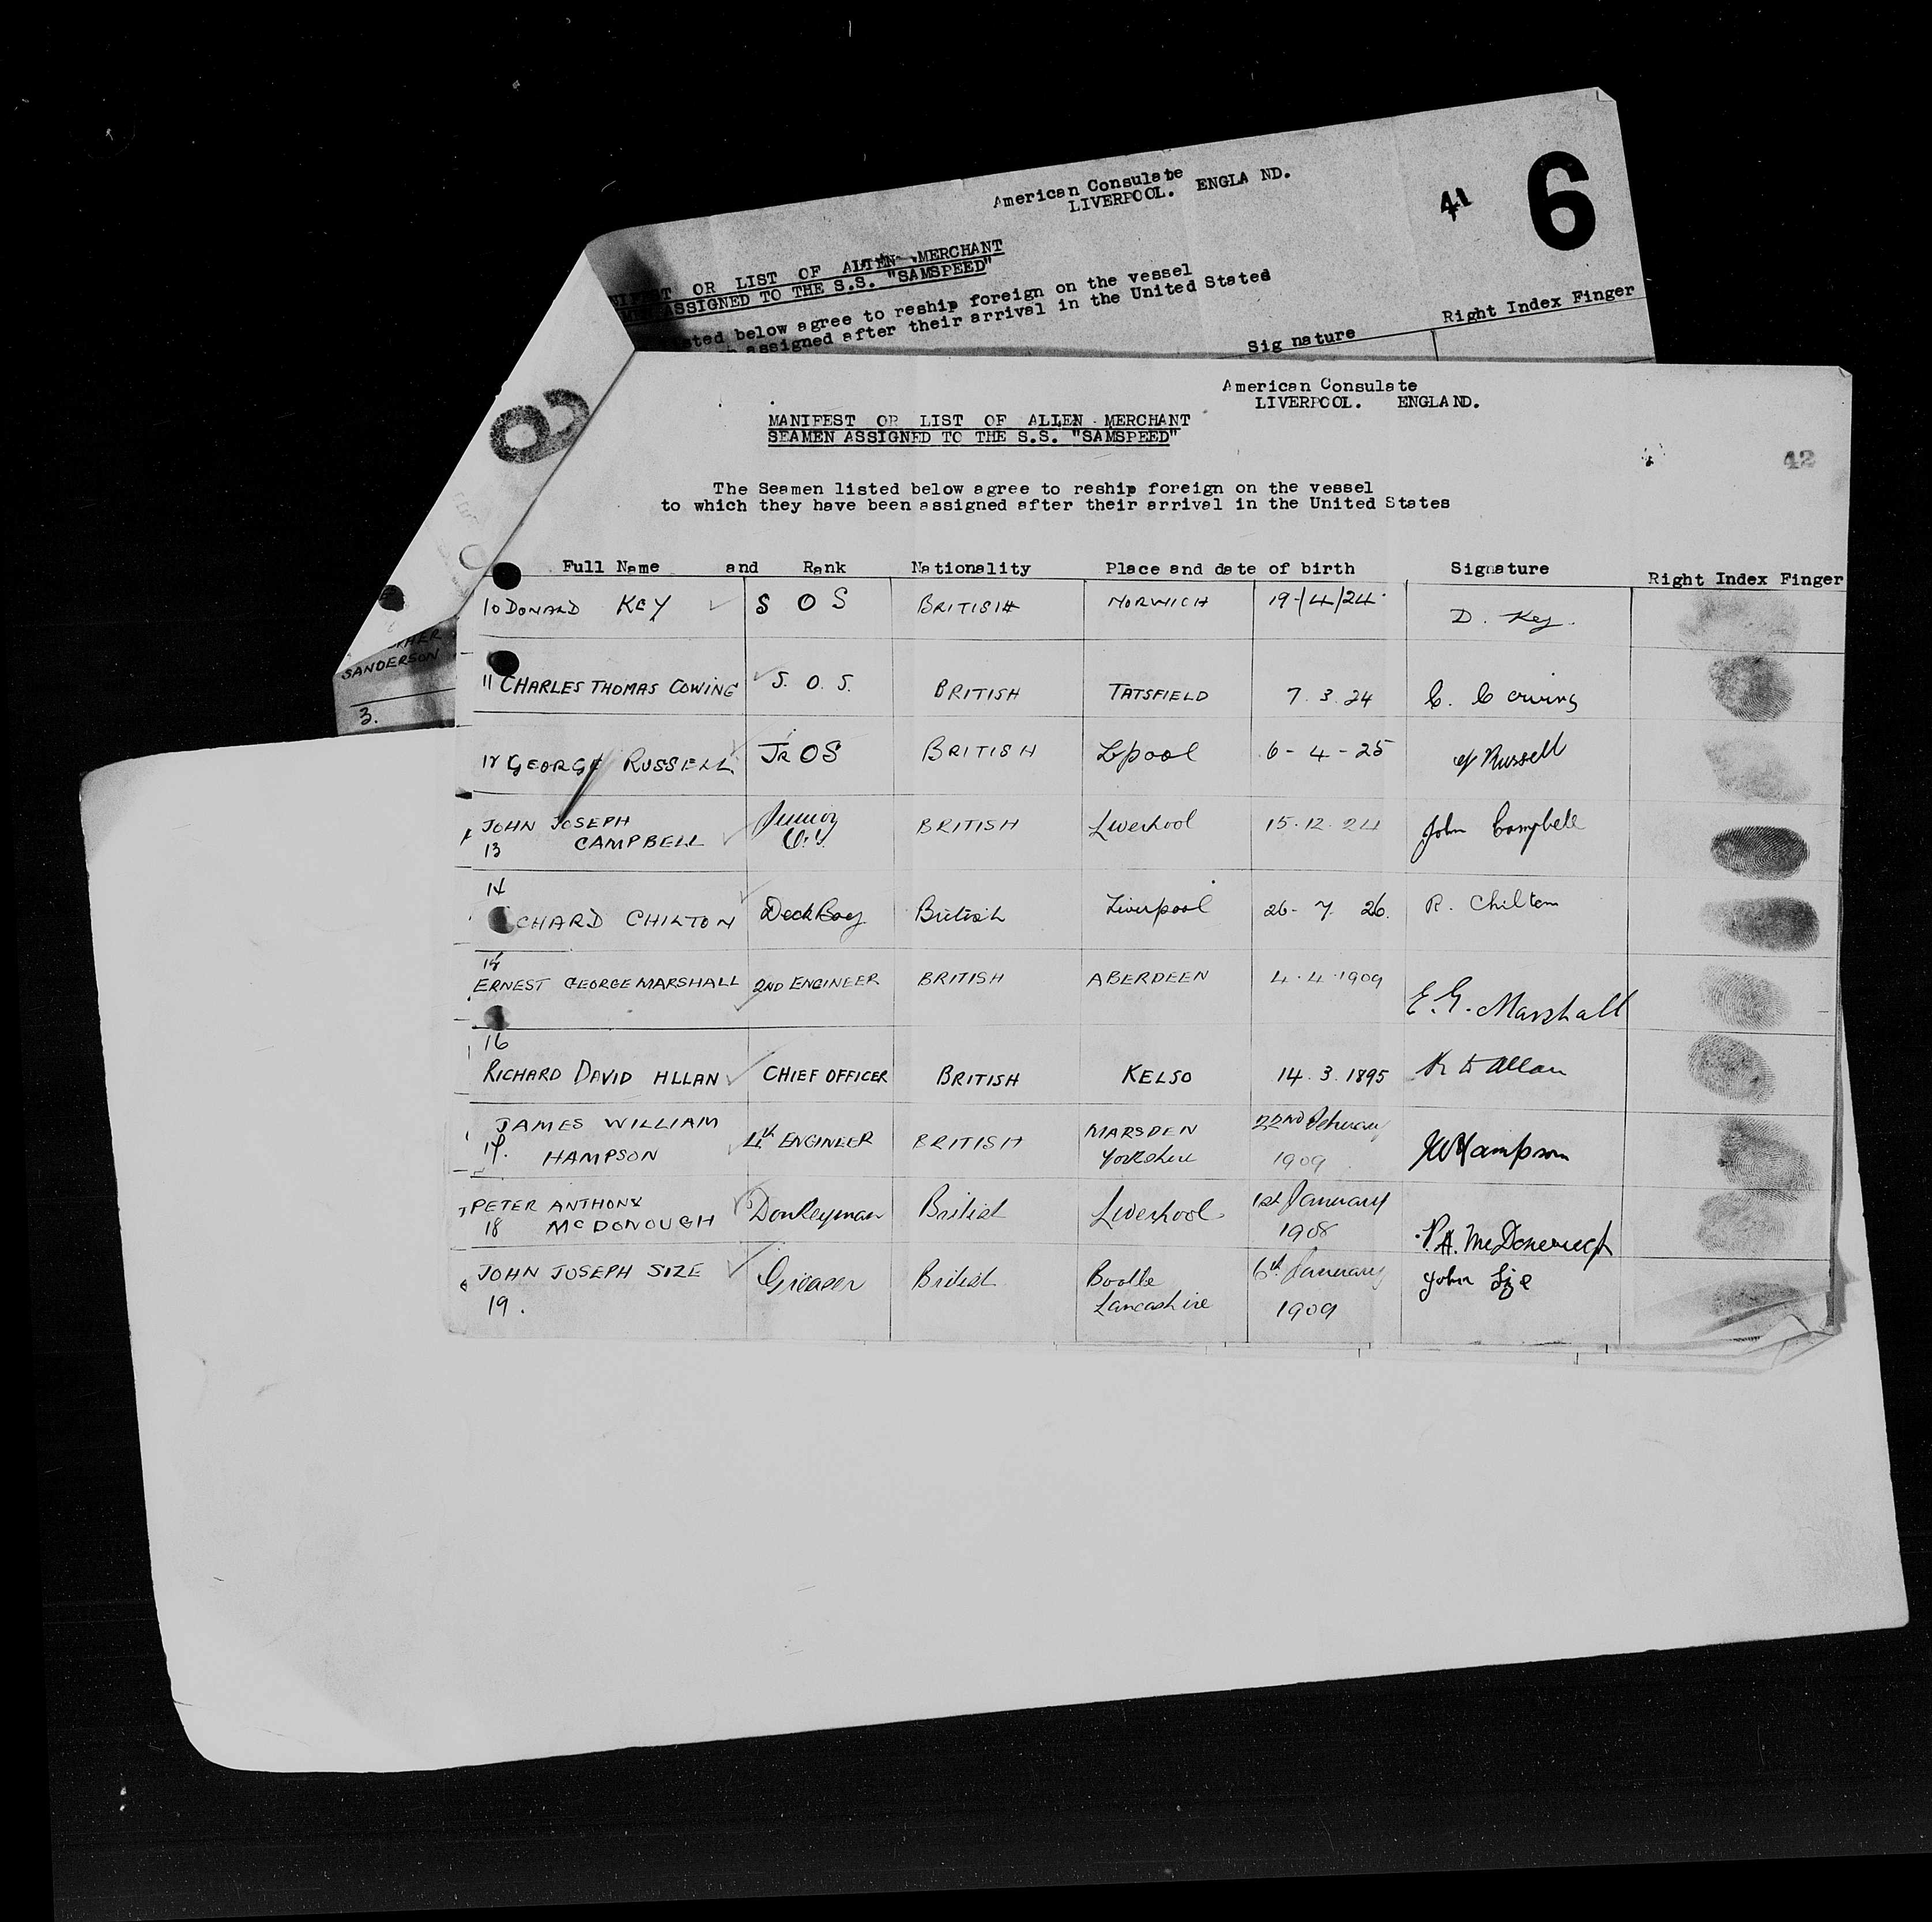 American Consulate
LIVERPOOL. ENGLA ND.
41
6
OR LIST OF ALIEN MERCHANT
ASSIGNED TO THE S.S. "SAMSPEED"
below agree to reship foreign on the vessel
assigned after their arrival in the United States
Signature Right Index Finger
6
SANDERSON
3.
American Consulate
LIVERPOOL. ENGLAND.
MANIFEST OR LIST OF ALIEN MERCHANT
SEAMEN ASSIGNED TO THE S.S. "SAMSPEED"
42
The Seamen listed below agree to reship foreign on the vessel
to which they have been assigned after their arrival in the United States
Full Name and Rank Nationality Place and date of birth Signature Right Index Finger
10 DONALD KEY S O S BRITISH NORWICH 19/4/24 D. Key.
11 CHARLES THOMAS COWING S. O. S. BRITISH TATSFIELD 7. 3. 24 C. Cowing
12 GEORGE RUSSELL Jr OS BRITISH L'pool 6 - 4 - 25 G Russell
JOHN JOSEPH
13 CAMPBELL Junior O.S. BRITISH Liverpool 15. 12. 24 John Campbell
14
CHARD CHILTON Deck Boy British Liverpool 26 - 7. 26. R. Chilton
15
ERNEST GEORGE MARSHALL 2ND ENGINEER BRITISH ABERDEEN 4. 4. 1909 E. G. Marshall
16
RICHARD DAVID ALLAN CHIEF OFFICER BRITISH KELSO 14. 3. 1895 R D Allan
JAMES WILLIAM
17. HAMPSON 4th ENGINEER BRITISH MARSDEN Yorkshire 22ND February 1909 JW Hampson
PETER ANTHONY
18 McDONOUGH Donkeyman British Liverpool 1st January 1908 P.A. McDonough
JOHN JOSEPH SIZE Greaser British Bootle Lancashire 6th January 1909 John Size
19.